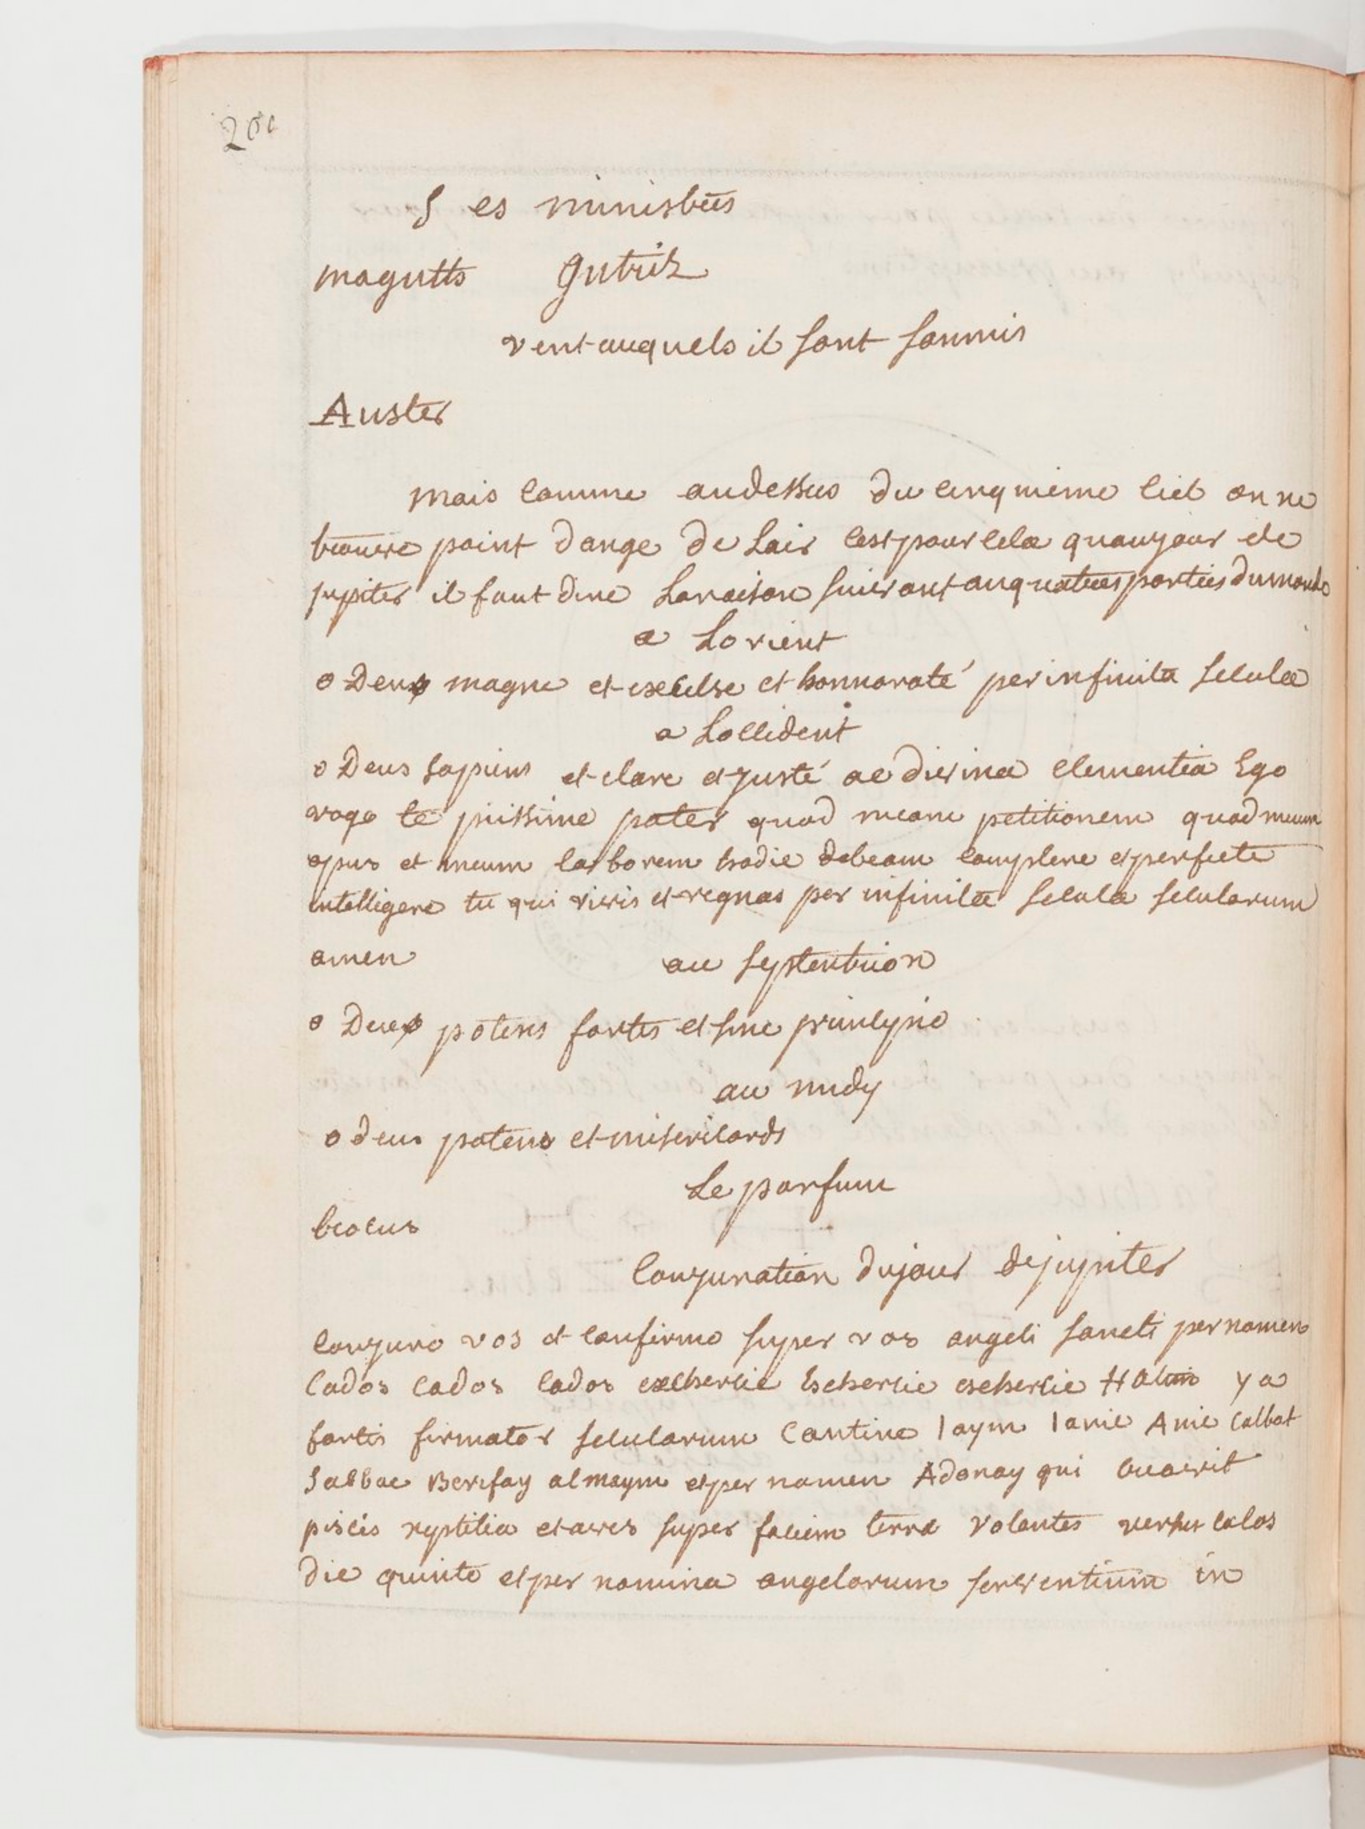 200
S es ministres
maguths gutriz
vent auquels il sont soumis
Auster
mais comme audessus du cinquieme ciel on ne
trouve point d'ange de lair cest pour cela quau jour de
jupiter il faut dire Loraison suivant auquatres parties du monde
a Lorient
o Deus magne et excelse et honnoraté per infinita secula
a Loccident
o Deus sapiens et clare et justé ac divina clementia Ego
rogo te piissime pater quod meam petitionem quod meum
opus et meum laborem hodie debeam complere et perfecte
intelligere tu qui vivis et regnas per infinita secula seculorum
amen au septentrion
o Deus potens fortis et sine principio
au midy
o deus potens et misericords
Le parfum
crocus
Conjuration du jour de jupiter
Conjuro vos et confirmo super vos angeli sancti per nomen
Cados Cados Cados eschercie Eschercie eschercie Hatim ya
fortis firmator seculorum Cantine Iaym Ianic Anie Calbat
Sabbac Berifay almaym et per nomen Adonay qui creavit
piscis reptilia et aves super faciem terra volantes versus celos
die quinto et per nomina angelorum serventium in